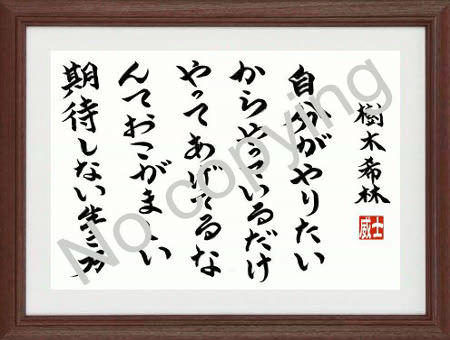 樹木希林
士威
自分がやりたい
からやっているだけ
やってあげてるな
んておこがましい
期待しない生き方
No copying